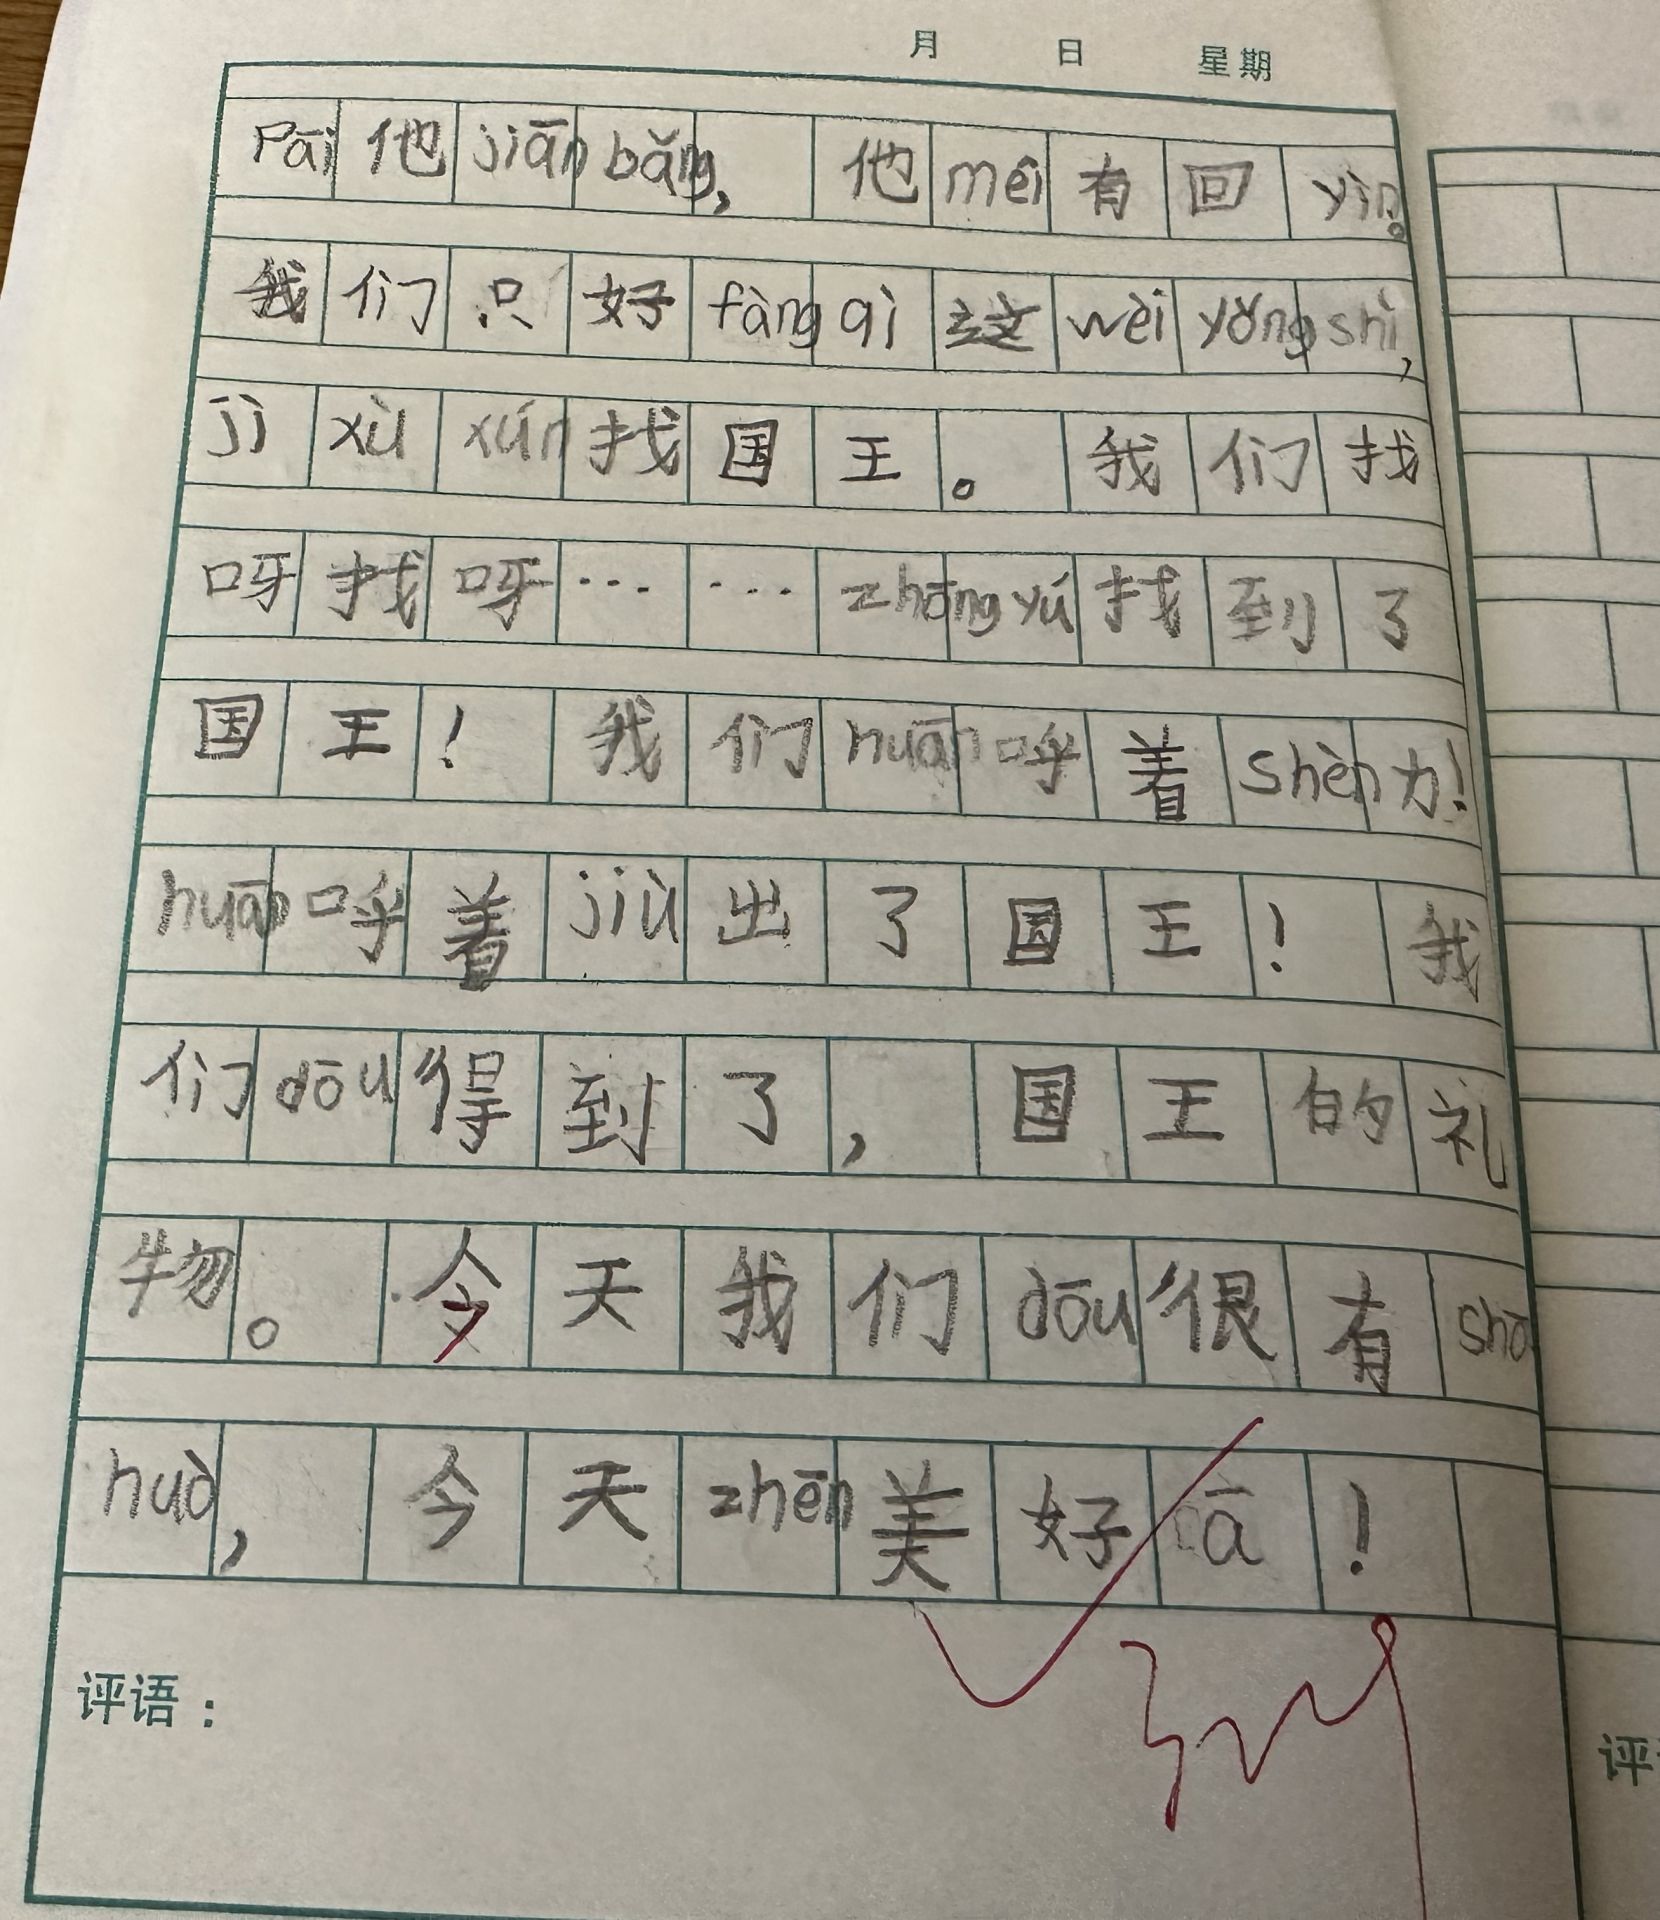 月 日 星期
Pāi他jiānbǎng,他méi有回yìn。
我们只好fàngqì这wèiyǒngshì,
jì xù xún找国王。我们找
呀找呀……zhōngyú找到了
国王!我们huān呼着shèn力!
huān呼着jiù出了国王!我
们dōu得到了,国王的礼
物。今天我们dōu很有shō
huò,今天zhēn美好ā!
评语: